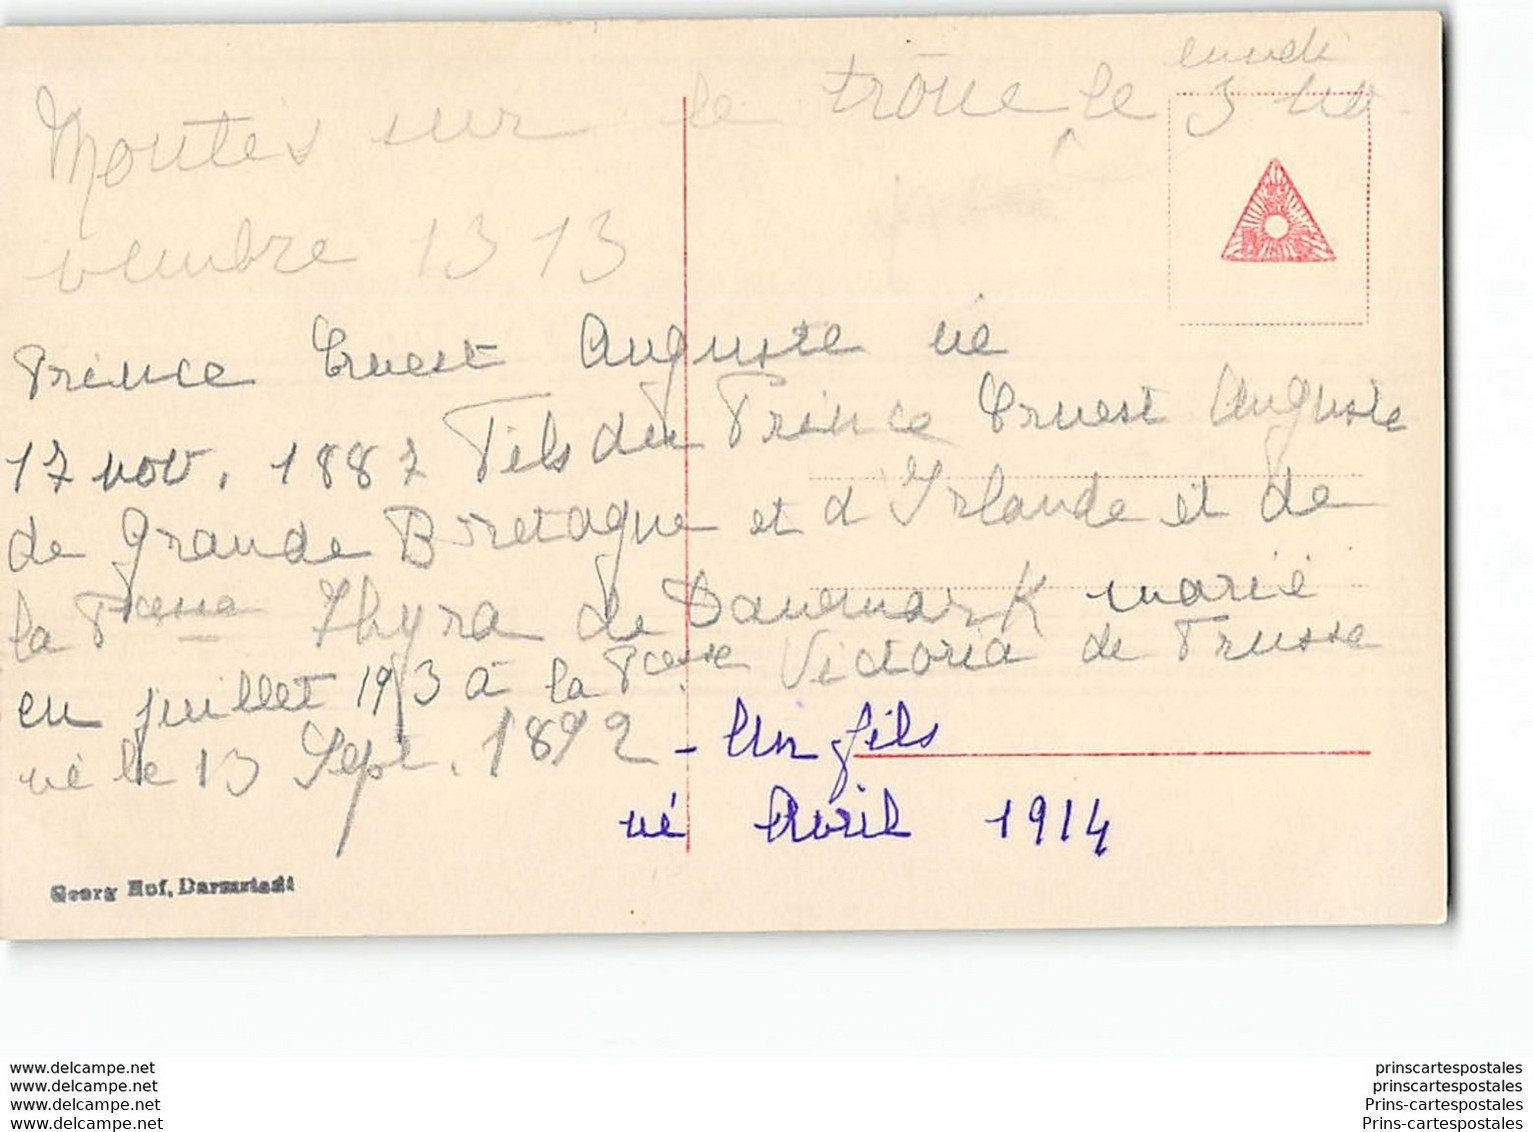 Montés sur le trône le 3 no
vembre 1313
Prince Ernest Auguste né
17 nov. 1887 Fils du Prince Ernest Auguste
de Grande Bretagne et d'Irlande et de
la Pcesse Thyra de Danemark marié
en juillet 1913 à la Pcesse Victoria de Prusse
né le 13 Sept. 1892 - Un fils
né Avril 1914
Georg Hof, Darmstadt
www.delcampe.net
www.delcampe.net
www.delcampe.net
www.delcampe.net
prinscartespostales
prinscartespostales
Prins-cartespostales
Prins-cartespostales